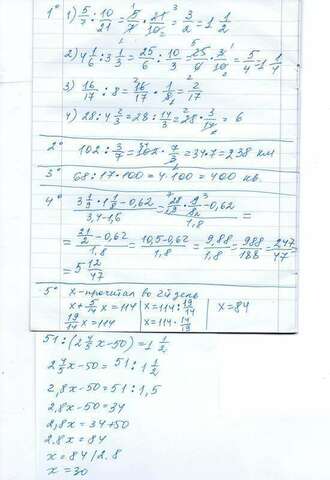 1° 1) 5/7 : 10/21 = 5/7 · 21/10 = 3/2 = 1 1/2
2) 4 1/6 : 3 1/3 = 25/6 : 10/3 = 25/6 · 3/10 = 5/4 = 1 1/4
3) 16/17 : 8 = 16/17 · 1/8 = 2/17
4) 28 : 4 2/3 = 28 : 14/3 = 28 · 3/14 = 6
2° 102 : 3/7 = 102 · 7/3 = 34·7 = 238 км
3° 68 : 17 · 100 = 4 · 100 = 400 кв.
4° =
= = (10,5 - 0,62)/1,8 = 9,88/1,8 = =
= 5 12/47
5° x - прочитал во 2й день
x + 5/14 x = 114 | x = 114 : 19/14 | x = 84
19/14 x = 114 | x = 114 · 14/19
51 : (2 4/5 x - 50) = 1 1/2
2 4/5 x - 50 = 51 : 1 1/2
2,8x - 50 = 51 : 1,5
2,8x - 50 = 34
2,8x = 34 + 50
2.8x = 84
x = 84 / 2.8
x = 30